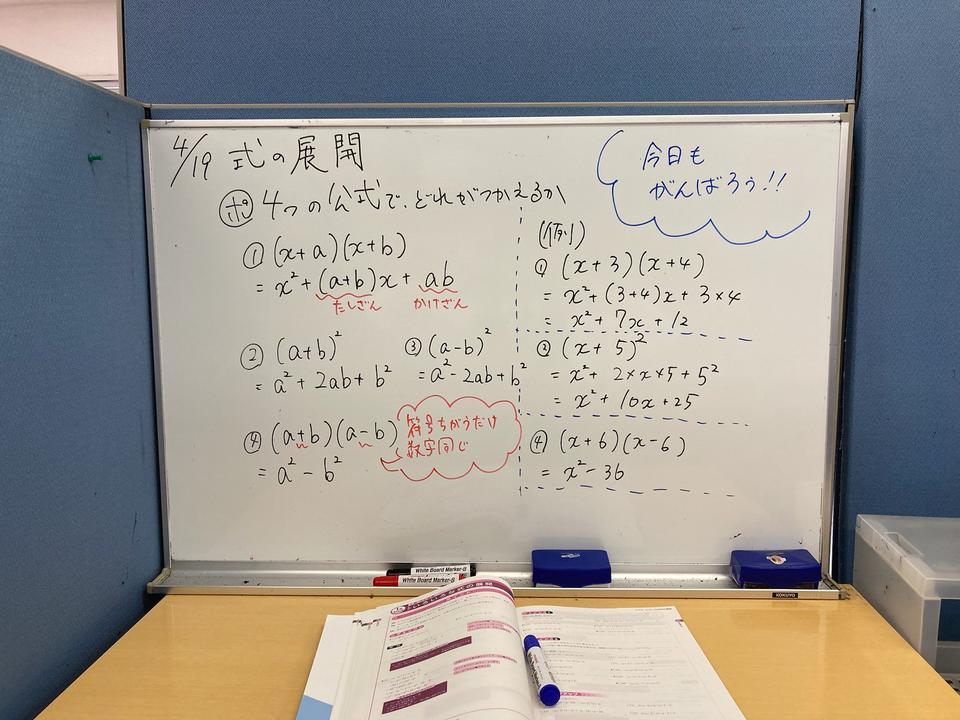 4/19 式の展開
ポ 4つの公式で、どれがつかえるか
① (x+a)(x+b)
= x²+(a+b)x+ab
たしざん かけざん
② (a+b)²
= a²+2ab+b²
③ (a-b)²
= a²-2ab+b²
④ (a+b)(a-b)
= a²-b²
符号ちがうだけ
数字同じ
今日も
がんばろう!!
(例)
① (x+3)(x+4)
= x²+(3+4)x+3×4
= x²+7x+12
② (x+5)²
= x²+2×x×5+5²
= x²+10x+25
④ (x+6)(x-6)
= x²-36
White Board Marker-B
White Board Marker-B
KOKUYO